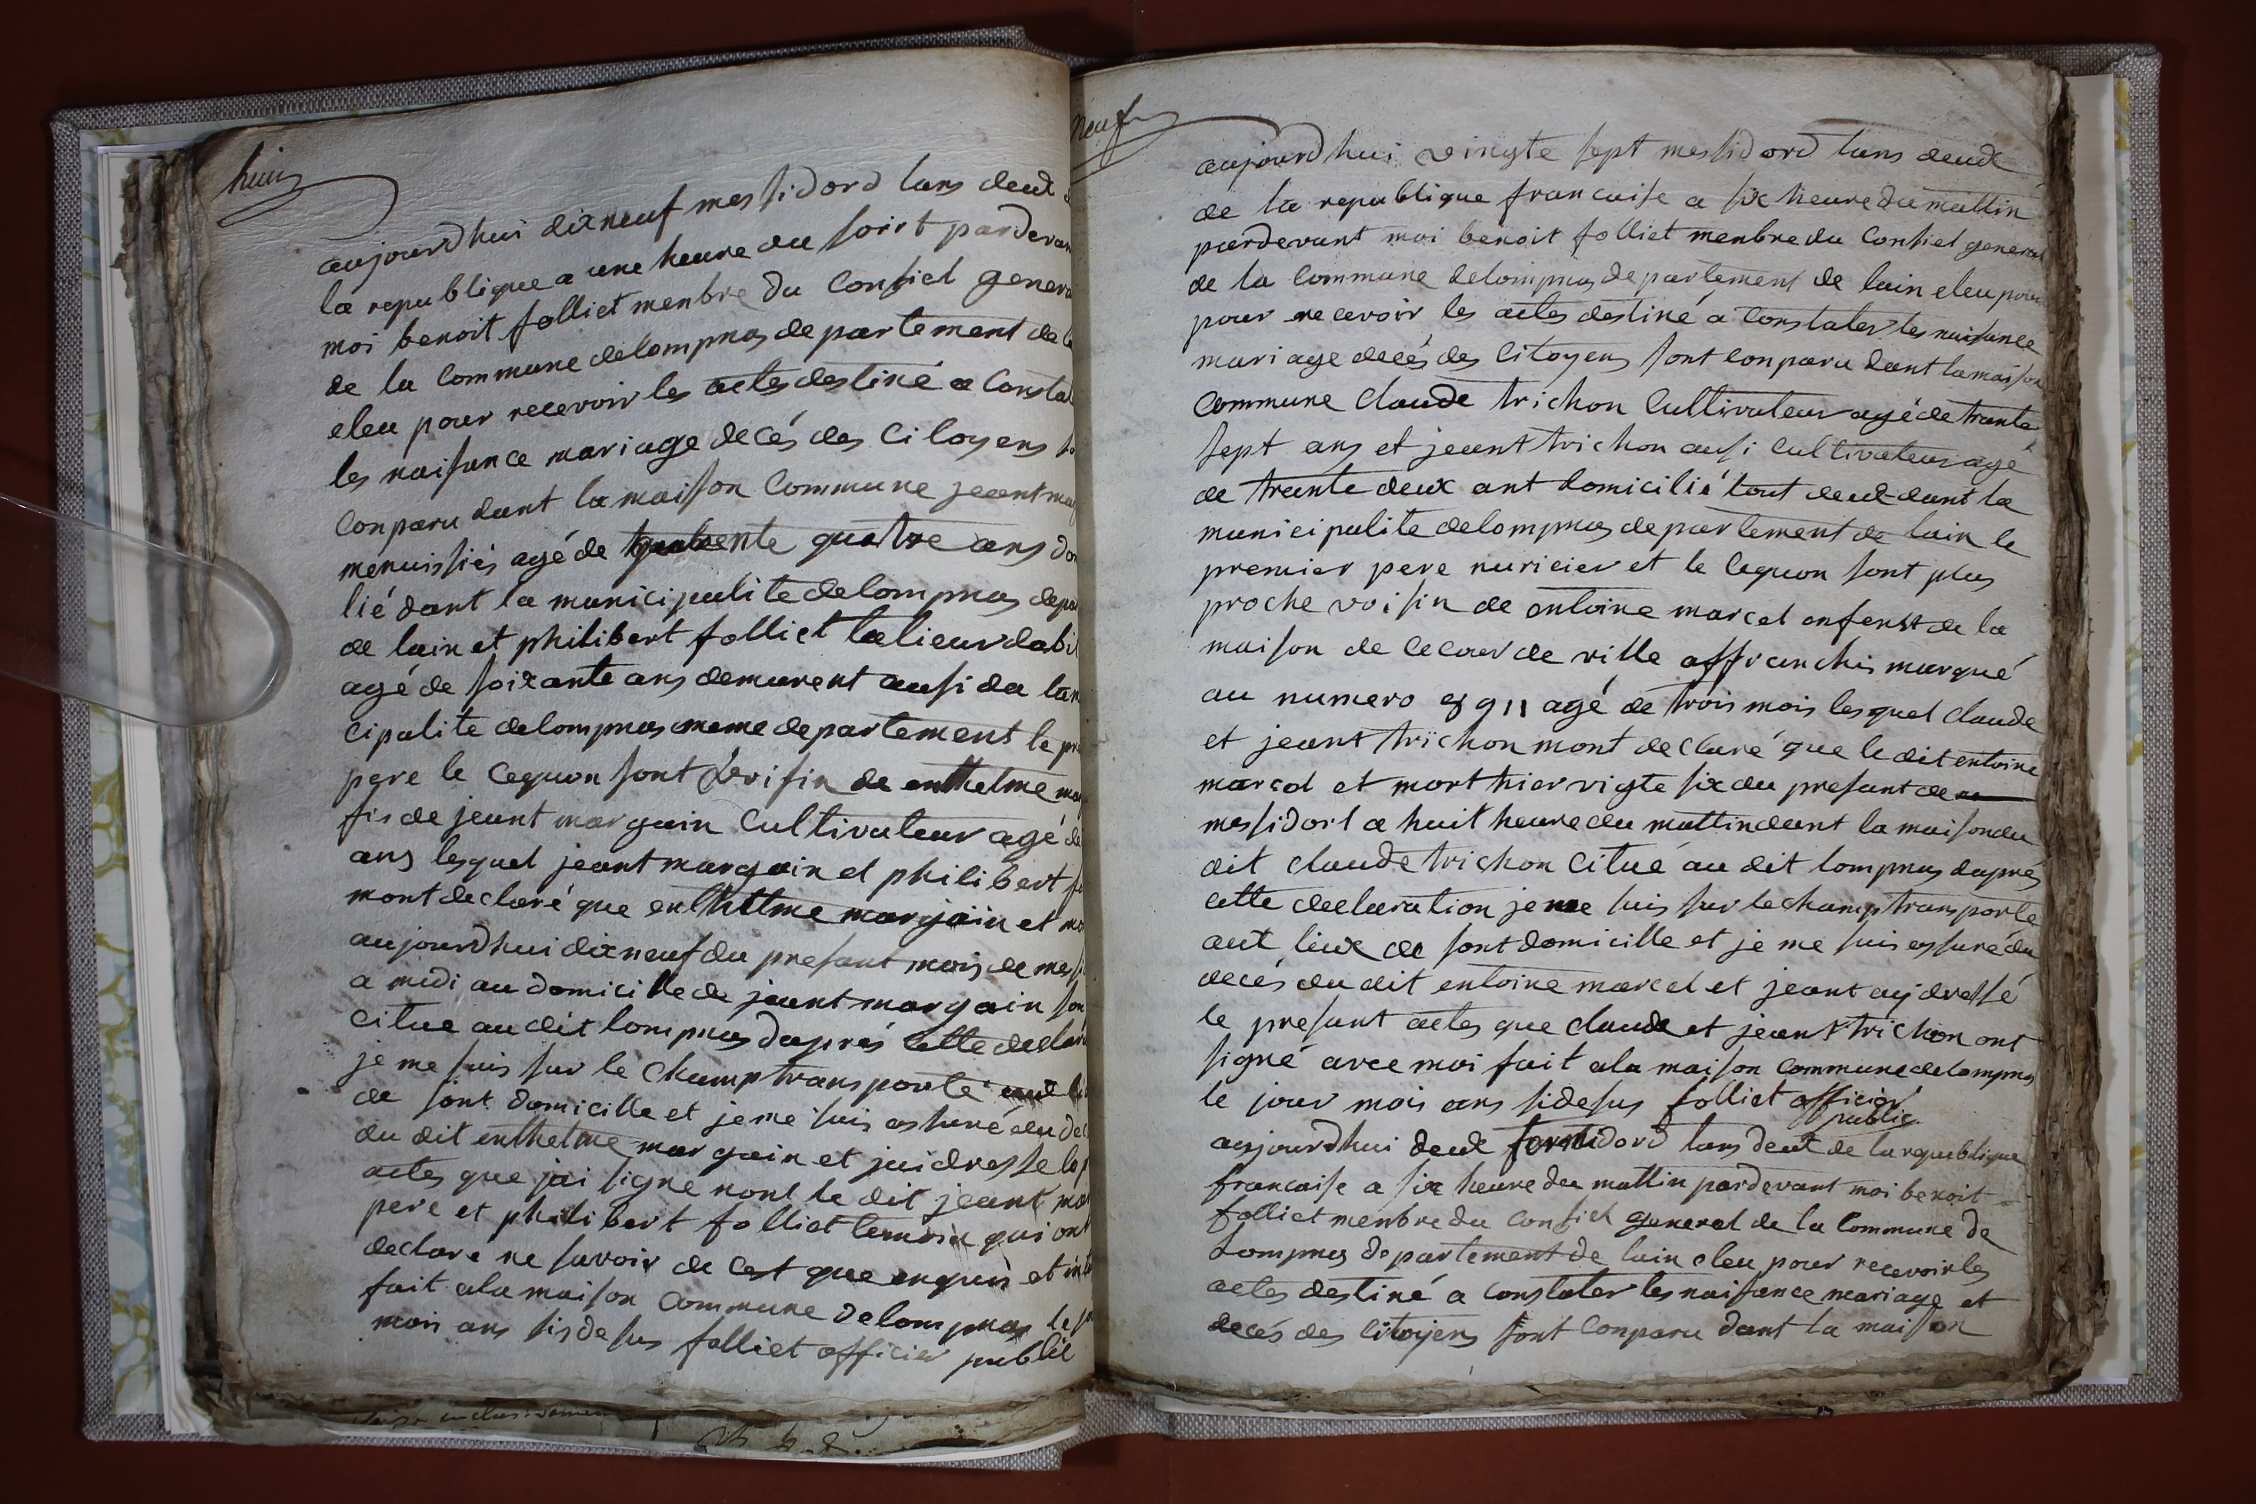 huit
aujourdhui dix neuf messidord lans deux
la republique a une heure du soirt pardevan
moi benoit folliet menbre du Consiel genera
de la Commune delompnas departement de l
eleu pour recevoir les actes destiné a Constat
les naisance mariage decés des Citoyens
Conparu dant la maisson Commune jeant mar
menuissiés agé de quatre ans do
lié dant la municipalite delompnas depar
de lain et philibert folliet talieur dabi
agé de soixante ans demurent ausi da la
cipalite delompnas meme departement le pr
pere le cequon sont voisin de enthelme mar
fis de jeant margain Cultivateur agé de
ans lesquel jeant margain et philibert fo
mont declaré que enthelme margain et mo
aujourdhui dix neuf du presant mois de messi
a midi au domicille de jeant margain son
citue au dit lompnas daprés cette declara
je me suis sur le Champ transporté aux li
de sont domicille et je me suis assuré du de
du dit enthelme margain et jai dressé le p
actes que jai signé nont le dit jeant mar
pere et philibert folliet temoin qui ont
declaré ne savoir de cest que enquis et in
fait ala maison Commune delompnas le jo
mois ans sisdesus folliet officier public
neuf
aujourdhui vingte sept messidord lans deux
de la republique francaise a six heure du mattin
pardevant moi benoit folliet menbre du Consiel general
de la Commune delompnas departement de lain eleu pour
pour recevoir les actes destiné a Constater les naisance
mariage decés des Citoyens sont conparu dant la maison
Commune Claude trichon Cultivateur agé de trante
sept ans et jeant trichon ausi Cultivateur agé
de trante deux ant domicilié tout deux dant la
municipalite delompnas departement de lain le
premier pere nuricier et le cequon sont plus
proche voisin de entoine marcel enfenst de la
maison de ce cour de ville affranchis marqué
au numero 8911 agé de trois mois lesquel claude
et jeant trichon mont declaré que le dit entoine
marcel et mort hier vigte six du presant de
messidort a huit heure du mattin dant la maison du
dit claude trichon Citué au dit lompnas daprés
cette declaration je me suis sur le champ transporte
aut lieux de sont domicille et je me suis assuré du
decés du dit entoine marcel et jeant ay dressé
le presant actes que claude et jeant trichon ont
signé avec moi fait ala maison Commune delompnas
le jour mois ans sidesus folliet officier
public
aujourdhui deux termidord lans deux de la republique
francaise a six heure du mattin pardevant moi benoit
folliet menbre du Consiel general de la Commune de
Lompnas departement de lain eleu pour recevoir les
actes destiné a constater les naisance mariage et
decés des citoyens sont Conparu dant la maison